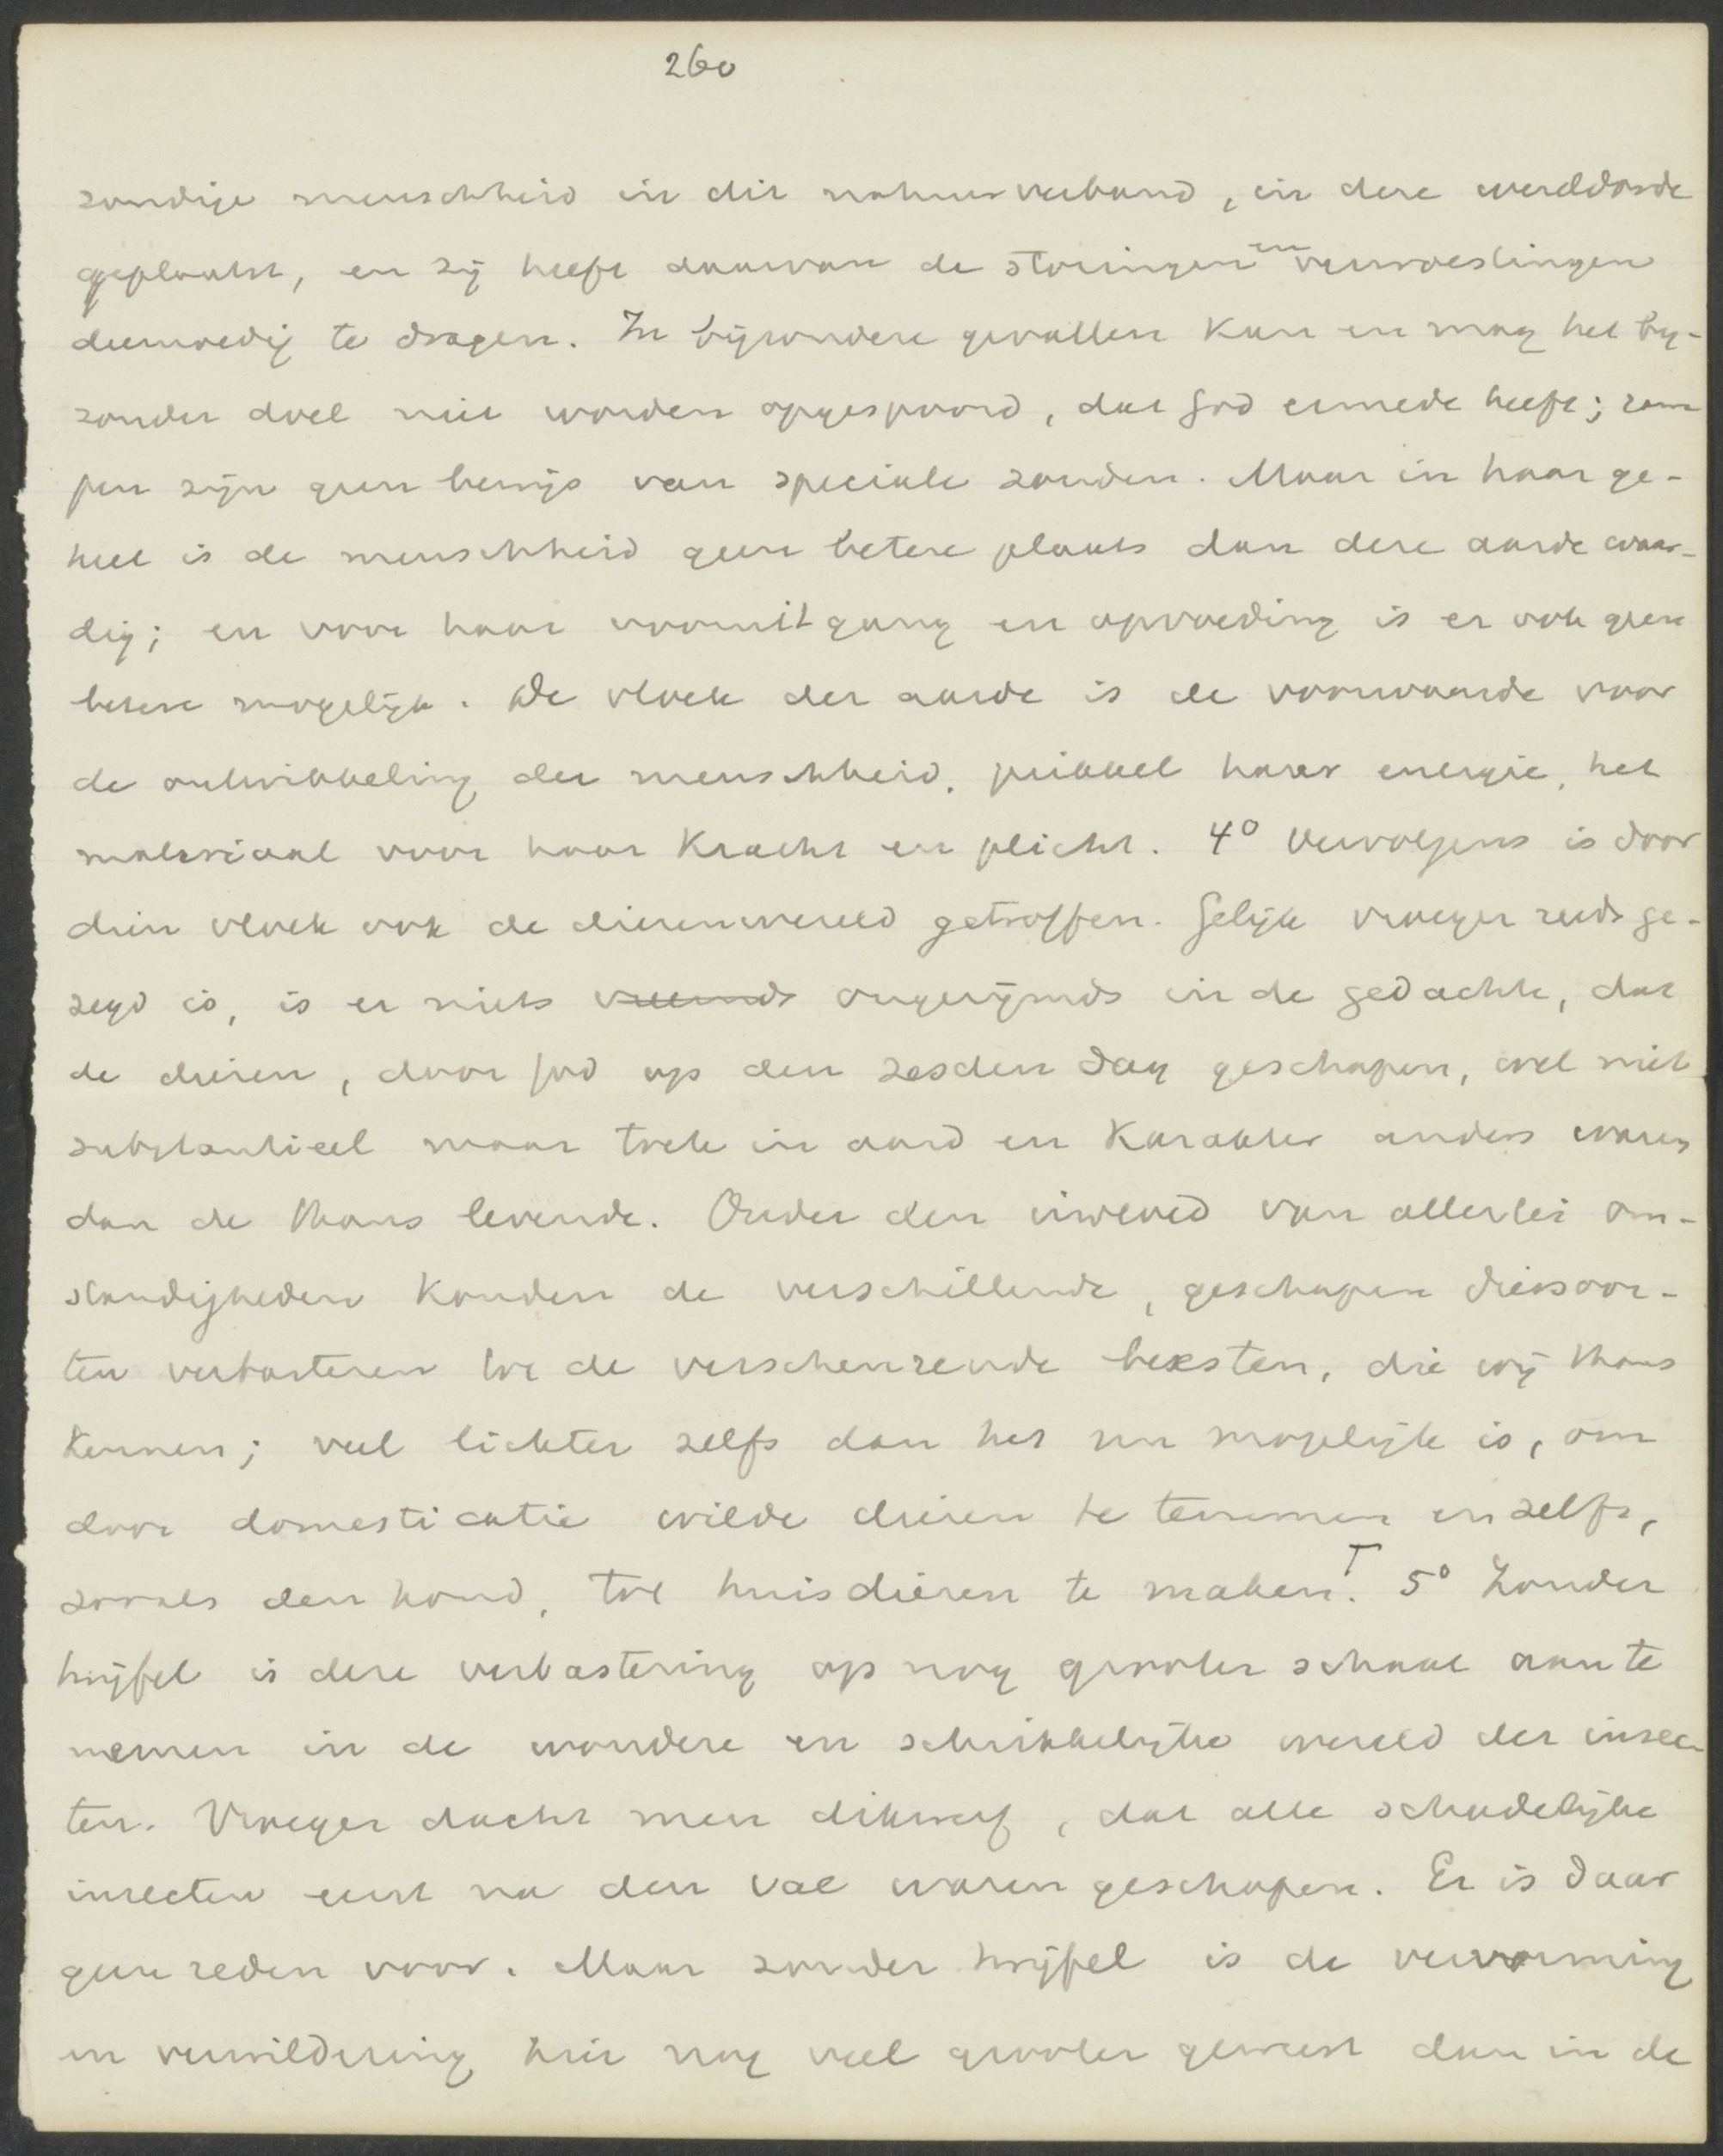 260
zondige menschheid in dit natuurverband, in deze wereldorde
geplaatst, en zij heeft daarvan de storingen en verwoestingen
deemoedig te dragen. In bijzondere gevallen kan en mag het bij-
zonder doel niet worden opgespoord, dat God ermede heeft; ram
pen zijn geen bewijs van speciale zonden. Maar in haar ge-
heel is de menschheid geen betere plaats dan deze aarde waar-
dig; en voor haar vooruitgang en opvoeding is er ook geen
betere mogelijk. De vloek der aarde is de voorwaarde voor
de ontwikkeling der menschheid, prikkel harer energie, het
materiaal voor haar kracht en plicht. 4° Vervolgens is door
dien vloek ook de dierenwereld getroffen. Gelijk vroeger reeds ge-
zegd is, is er niets vreemds ongerijmds in de gedachte, dat
de dieren, door God op den zesden dag geschapen, wel niet
substantieel maar toch in aard en karakter anders waren
dan de thans levende. Onder den invloed van allerlei om-
standigheden konden de verschillende, geschapen diersoor-
ten verbasteren tot de verscheurende beesten, die wij thans
kennen; veel lichter zelfs dan het nu mogelijk is, om
door domesticatie wilde dieren te temmen en zelfs,
zooals den hond, tot huisdieren te maken. 5° Zonder
twijfel is deze verbastering op nog grooter schaal aan te
nemen in de wondere en schrikkelijke wereld der insec-
ten. Vroeger dacht men dikwerf, dat alle schadelijke
insecten eerst na den val waren geschapen. Er is daar
geen reden voor. Maar zonder twijfel is de vervorming
en verwildering hier nog veel grooter geweest dan in de